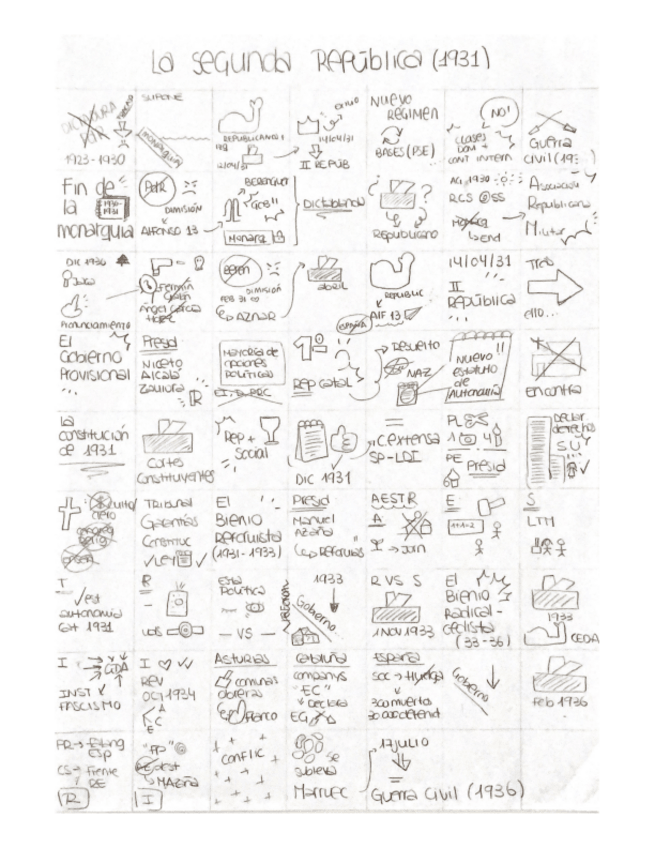 La Segunda República (1931)
DICTADURA
PDR
1923-1930
SUPONE
MONARQUÍA
REPUBLICANOS
12/04/31
EXILIO
14/04/31
II REPUB
NUEVO
RÉGIMEN
BASES (PSE)
NO!
CLASES
DOM +
CONT INTERN
Guerra
Civil
Fin de
la
monarquía
1930-
1931
PdR
DIMISIÓN
ALFONSO 13
BERENGUER
GOB!!
Monarq
Dictablanda
¿ ?
Republicano
AG 1930
RCS @ SS
Monarq
→ end
Asociación
Republicana
Militar
DIC 1930
Jaca
Pronunciamiento
Fermín
Galán
Ángel García
Beren
DIMISIÓN
FEB 31
AZNAR
abril
REPUBLIC
Alf 13
14/04/31
II
República
Tras
ello...
El
Gobierno
Provisional
...
Presid
Niceto
Alcalá
Zamora
R
Mayoría de
opciones
políticas
1º
Rep catal
ESPAÑA
Resuelto
NAZ
Nuevo !!
estatuto
de
Autonomía
en contra
La
constitución
de 1931
Cortes
Constituyentes
Rep +
Social
DIC 1931
C.extensa
SP-LDI
PL
PE
Presid
Declar
derechos
SU
quita
clero
Tribunal
Garantías
Constituc
✓LEY ✓
El
Bienio
Reformista
(1931-1933)
Presid
Manuel
Azaña
Reformas
AESTR
A
→ Jorn
E
1+1=2
S
LTM
T
✓est
autonomía
Cat 1931
R
-
Esta
Política
- VS -
1933
Gobierno
R VS S
1 NOV 1933
El
Bienio
Radical-
cedista
(33-36)
1933
CEDA
I → CEDA
INST
FASCISMO
I
REV
OCT 1934
C
E
Asturias
comunas
obreras
Franco
Cataluña
companys
"EC"
Declara
EG
España
SOC → Huelga
300 muertos
30 000 detenid
Gobierno
Feb 1936
FR → Falang
Esp
CS → Frente
RE
R
"FP"
I
→ MAzaña
CONFLIC
Se
subleva
Marruec
17 JULIO
Guerra Civil (1936)